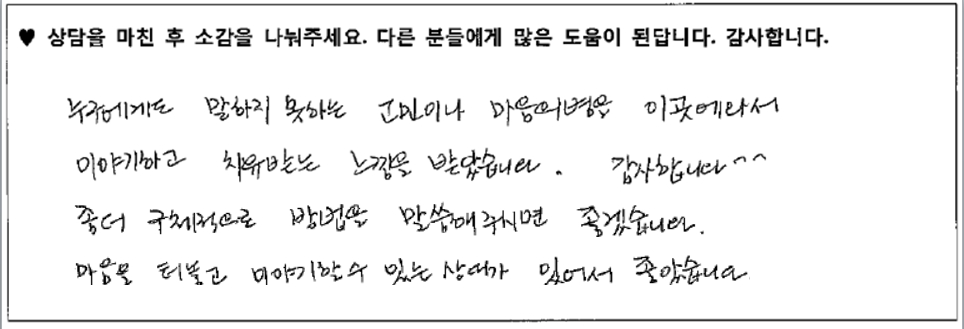 ♥ 상담을 마친 후 소감을 나눠주세요. 다른 분들에게 많은 도움이 된답니다. 감사합니다.
누구에게도 말하지 못하는 고민이나 마음의병을 이곳에와서
이야기하고 치유받는 느낌을 받았습니다. 감사합니다^^
좀더 구체적으로 방법을 말씀해주시면 좋겠습니다.
마음을 터놓고 이야기할수 있는 상대가 있어서 좋았습니다